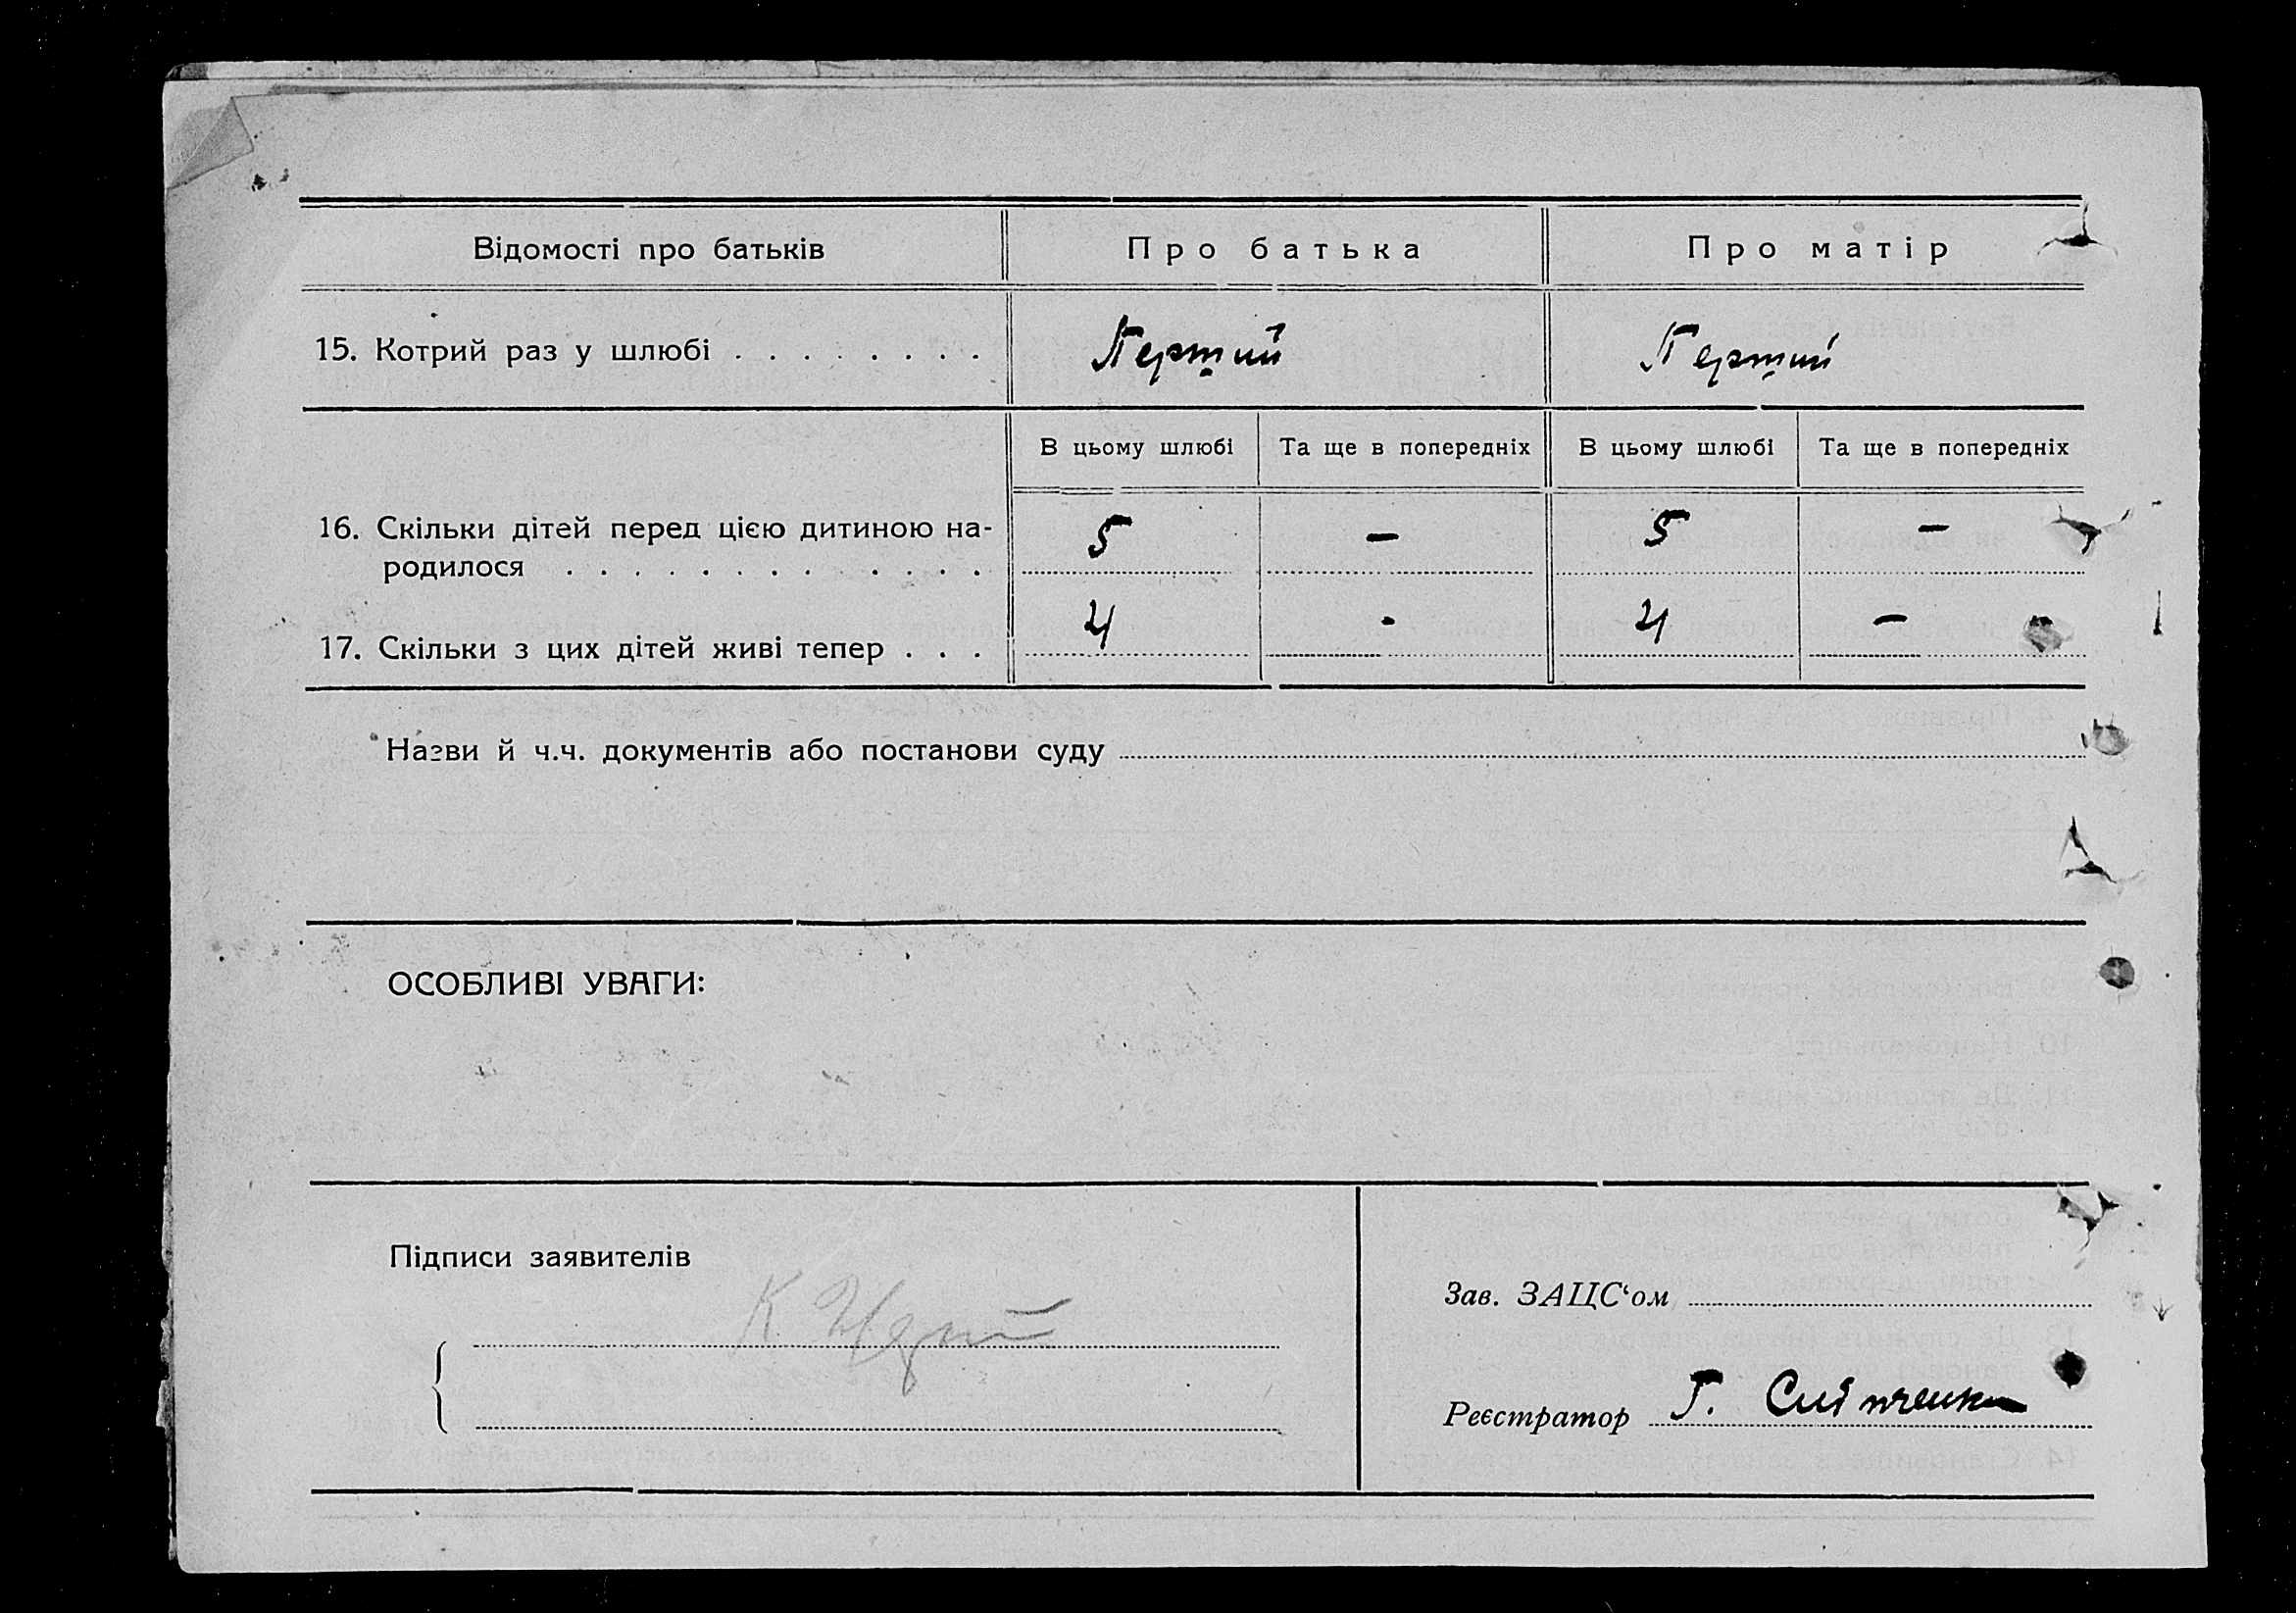 Відомості про батьків Про батька Про матір
15. Котрий раз у шлюбі . . . . . . . . Перший Перший
В цьому шлюбі Та ще в попередніх В цьому шлюбі Та ще в попередніх
16. Скільки дітей перед цією дитиною на-
родилося . . . . . . . . . . . . . 5 — 5 —
17. Скільки з цих дітей живі тепер . . . 4 - 4 —
Назви й ч.ч. документів або постанови суду
ОСОБЛИВІ УВАГИ:
Підписи заявителів
К
Зав. ЗАЦС‘ом
Реєстратор Г.